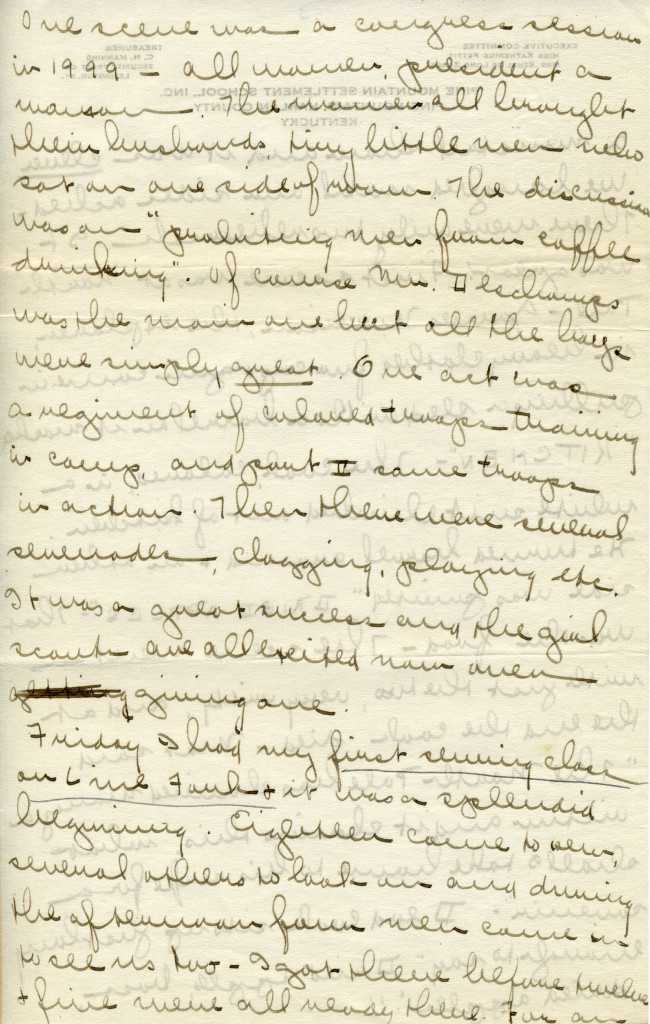 One scene was a congress session
in 1999 – all women, president a
woman. The women all brought
their husbands, tiny little men who
sat on one side of room. The discussion
was on "prohibiting men from coffee
drinking". Of course Mr. Deschamps
was the main one but all the boys
were simply great. One act was
a regiment of colored troops training
in camp, and part II same troops
in action. Then there were several
serenades, clogging, playing etc.
It was a great success and the girl
scouts are all excited now over
giving one.
Friday I had my first sewing class
on Line Fork & it was a splendid
beginning. Eighteen came to sew,
several others to look on and during
the afternoon four men came in
to see us too – I got there before twelve
& five were all ready there. For an
EXECUTIVE COMMITTEE
MISS KATHERINE PETTIT
TREASURER
C. N. MANNING
PINE MOUNTAIN SETTLEMENT SCHOOL, INC.
KENTUCKY